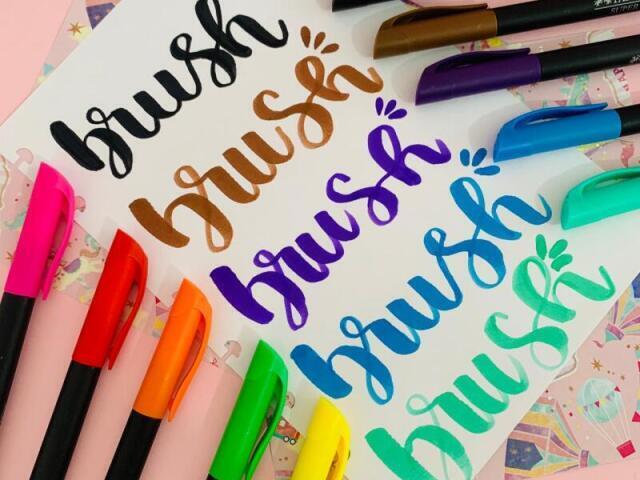 brush
brush
brush
brush
brush
SUPER